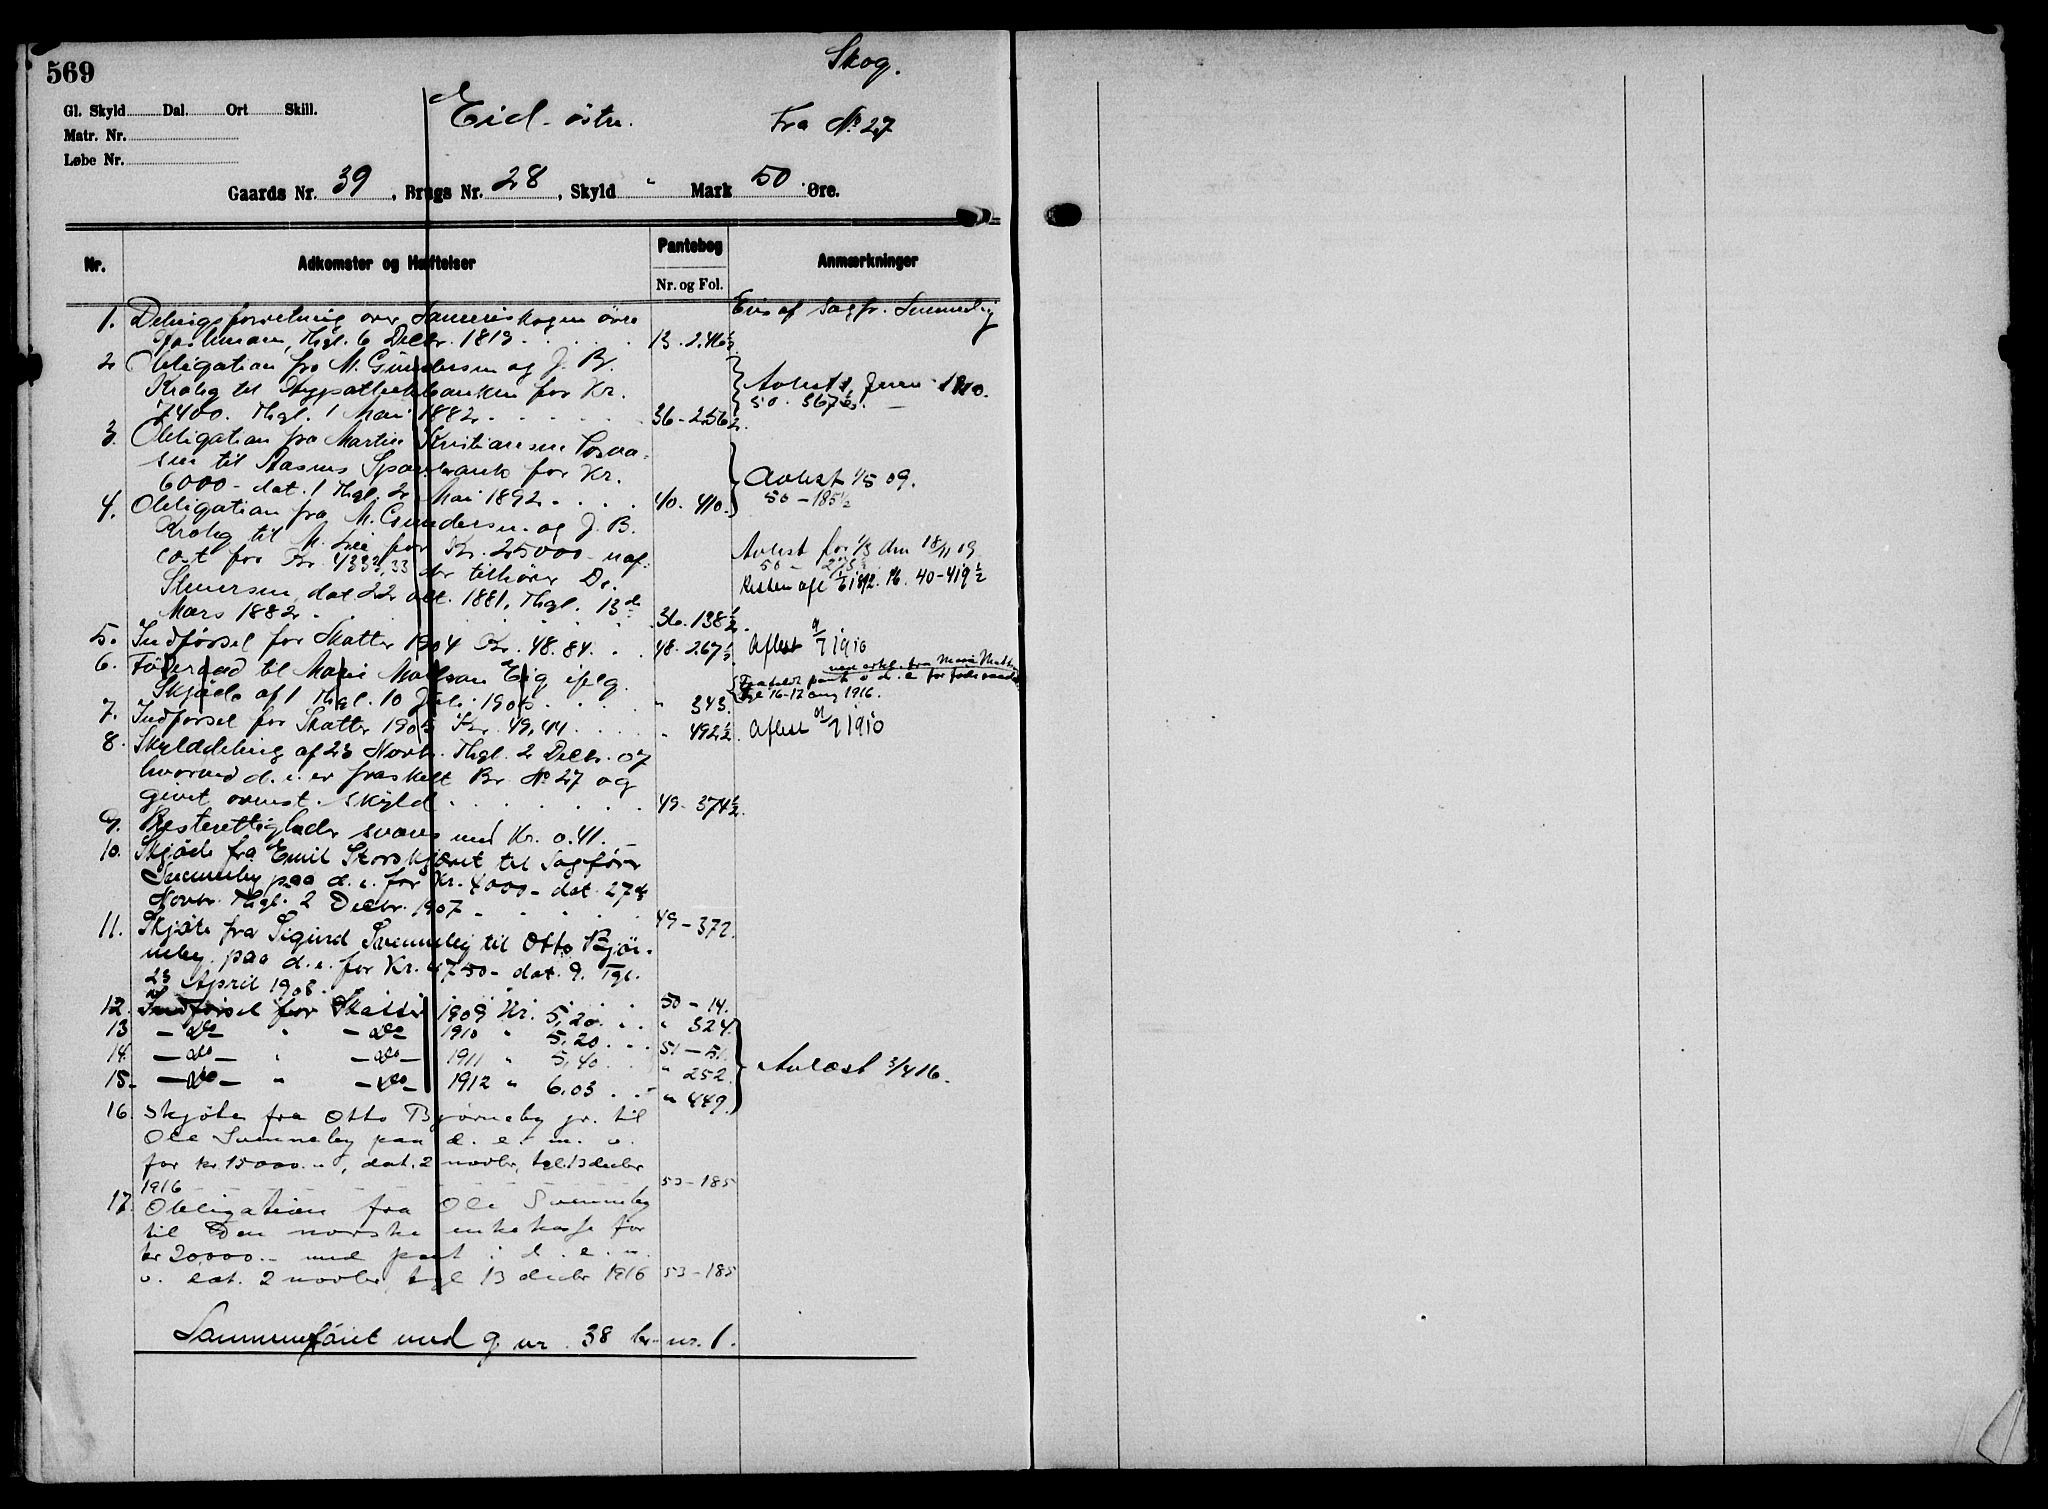 569
Skog.
Gl. Skyld Dal. Ort Skill.
Eid østre.
Fra No 27
Matr. Nr.
Løbe Nr.
Gaards Nr. 39, Brugs Nr. 28, Skyld " Mark 50 Øre.
Nr. Adkomster og Hæftelser Pantebog Anmærkninger
Nr. og Fol.
Eies af Sagfr. Svenneby
1. Delingsforretning over skogen øvre
Thgl. 6 Decbr. 1813 13. 246½
2 Obligation fra M. Gundersen og J. B.
Krohg til Hypothekbanken for Kr.
7400. Thgl. 1 Mai 1882 36-256½.
Avlest 1910.
50. 367
3. Obligation fra Martin Kristiansen
sen til Aasnes Sparebank for Kr.
6000 - dat. 1 Thgl. 2 Mai 1892 40. 410.
Avlest 1/5 09.
50-185½
4. Obligation fra M. Gundersen og J. B.
Krohg til M. Lie for Kr. 25000
for Kr. 4333,33 der tilhører D.
dat 22 1881, Thgl. 13de
Mars 1882 36. 138½.
Avlest for 1/3 den 18/11 09
50 -
Resten afl. 1892. 40-419½
5. Indførsel for Skatter 1904 Kr. 48.84. 48. 267½.
Aflest 9/7 1910
6. Føderaad til Marie Madsen Eig iflg.
Skjøde af 1 Thgl. 10 Juli 1905 " 343.
pant i d. e. for føderaadet
tgl 16-12 aug 1916.
7. Indførsel for Skatter 1905 Kr. 49,44 " 492½.
Aflest 9/7 1910
8. Skylddeling af 23 Novbr. Thgl. 2 Decbr. 07
hvorved d. e. er fraskilt Br. No 27 og
givet ovenst. skyld 49-374½.
9. svares med Kr. 0.41.
10. Skjøde fra Emil Storskjæret til Sagfører
Svenneby paa d. e. for Kr. 4000- dat. 27de
Novbr. Thgl. 2 Decbr. 1907 49-372.
11. Skjøte fra Sigurd Svenneby til Otto Bjør-
neby paa d. e. for Kr. 4750- dat. 9. Tgl.
23 April 1908. 50-14.
12. Indførsel for Skatter 1909 Kr. 5,20. " 324.
13 - do - " - do - 1910 " 5,20 51-51.
14. - do - " - do - 1911 " 5,40 " 252.
15. - do - " - do - 1912 " 6.03 " 449.
Avlæst 3/4 16.
16. Skjøte fra Otto Bjørneby jr. til
Ole Svenneby paa d. e. m. v.
for kr. 15000.-, dat. 2 novbr, tgl. 13 decbr
1916 53-185
17. Obligation fra Ole Svenneby
til Den norske enkekasse for
kr 20,000.- med pant i d. e. m.
v. dat. 2 novbr, tgl 13 decbr 1916 53-185
Sammenføiet med g. nr. 38 br. nr. 1.